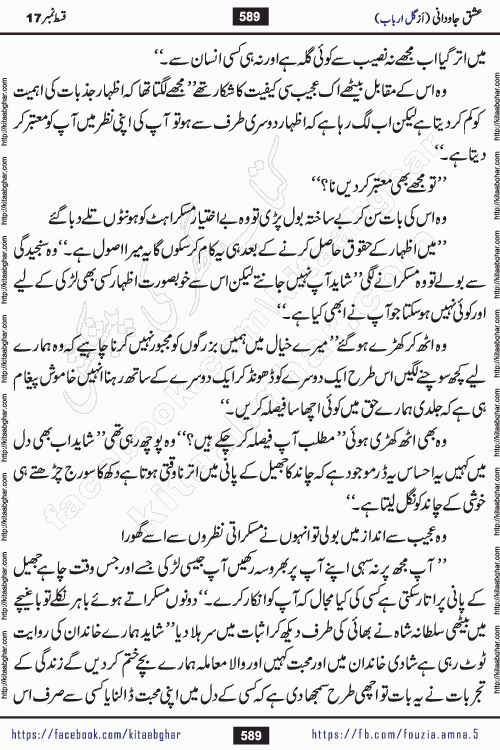 عشق جاودانی (از گل ارباب)
589
قسط نمبر 17
میں اتر گیا اب مجھے نہ نصیب سے کوئی گلہ ہے اور نہ ہی کسی انسان سے۔‘‘
وہ اس کے مقابل بیٹھے اک عجیب سی کیفیت کا شکار تھے’’ مجھے لگتا تھا کہ اظہار جذبات کی اہمیت
کو کم کر دیتا ہے لیکن اب لگ رہا ہے کہ اظہار دوسری طرف سے ہو تو آپ کی اپنی نظر میں آپ کو معتبر کر
دیتا ہے۔‘‘
’’تو مجھے بھی معتبر کر دیں نا؟‘‘
وہ اس کی بات سن کر بے ساختہ بول پڑی تو وہ بے اختیار مسکراہٹ کو ہونٹوں تلے دبا گئے
’’میں اظہار کے حقوق حاصل کرنے کے بعد ہی یہ کام کر سکوں گا یہ میرا اصول ہے۔‘‘ وہ سنجیدگی
سے بولے تو وہ مسکرانے لگی’’ شاید آپ نہیں جانتے لیکن اس سے خوبصورت اظہار کسی بھی لڑکی کے لیے
اور کوئی نہیں ہو سکتا جو آپ نے ابھی کیا ہے۔‘‘
وہ اٹھ کر کھڑے ہو گئے’’ میرے خیال میں ہمیں بزرگوں کو مجبور نہیں کرنا چاہیے کہ وہ ہمارے
لیے کچھ سوچنے لگیں اس طرح ایک دوسرے کو ڈھونڈ کر ایک دوسرے کے ساتھ رہنا انہیں خاموش پیغام
ہی ہے کہ جلدی ہمارے حق میں کوئی اچھا سا فیصلہ کریں۔‘‘
وہ بھی اٹھ کھڑی ہوئی’’ مطلب آپ فیصلہ کر چکے ہیں؟‘‘ وہ پوچھ رہی تھی’’ شاید اب بھی دل
میں کہیں یہ احساس یہ ڈر موجود ہے کہ چاند کا جھیل کے پانی میں اترنا وقتی ہوتا ہے دکھ کا سورج چڑھتے ہی
خوشی کے چاند کو نگل لیتا ہے۔‘‘
وہ عجیب سے انداز میں بولی تو انہوں نے مسکراتی نظروں سے اسے گھورا
’’ آپ مجھ پر نہ سہی اپنے آپ پر بھروسہ رکھیں آپ جیسی لڑکی جسے اور جس وقت چاہے جھیل
کے پانی پر اتار سکتی ہے کسی کی کیا مجال کہ آپ کو انکار کرے۔‘‘ دونوں مسکراتے ہوئے باہر نکلے تو باغیچے
میں بیٹھی سلطانہ شاہ نے بھائی کی طرف دیکھ کر اثبات میں سر ہلا دیا’’ شاید ہمارے خاندان کی روایت
ٹوٹ رہی ہے شادی خاندان میں اور محبت کہیں اور والا معاملہ ہمارے بچے ختم کر دیں گے زندگی کے
تجربات نے یہ بات تو اچھی طرح سمجھا دی ہے کہ کسی کے دل میں اپنی محبت ڈالنا یا کسی سے صرف اس
https://facebook.com/kitaabghar
589
https://fb.com/fouzia.amna.5
http://kitaabghar.com